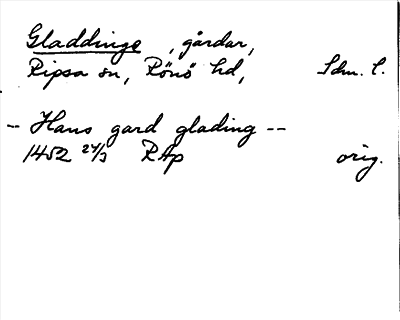 Gladdinge, gårdar,
Ripsa sn, Rönö hd, Sdm. l.
- Hans gard glading --
1452 24/3 RAp orig.